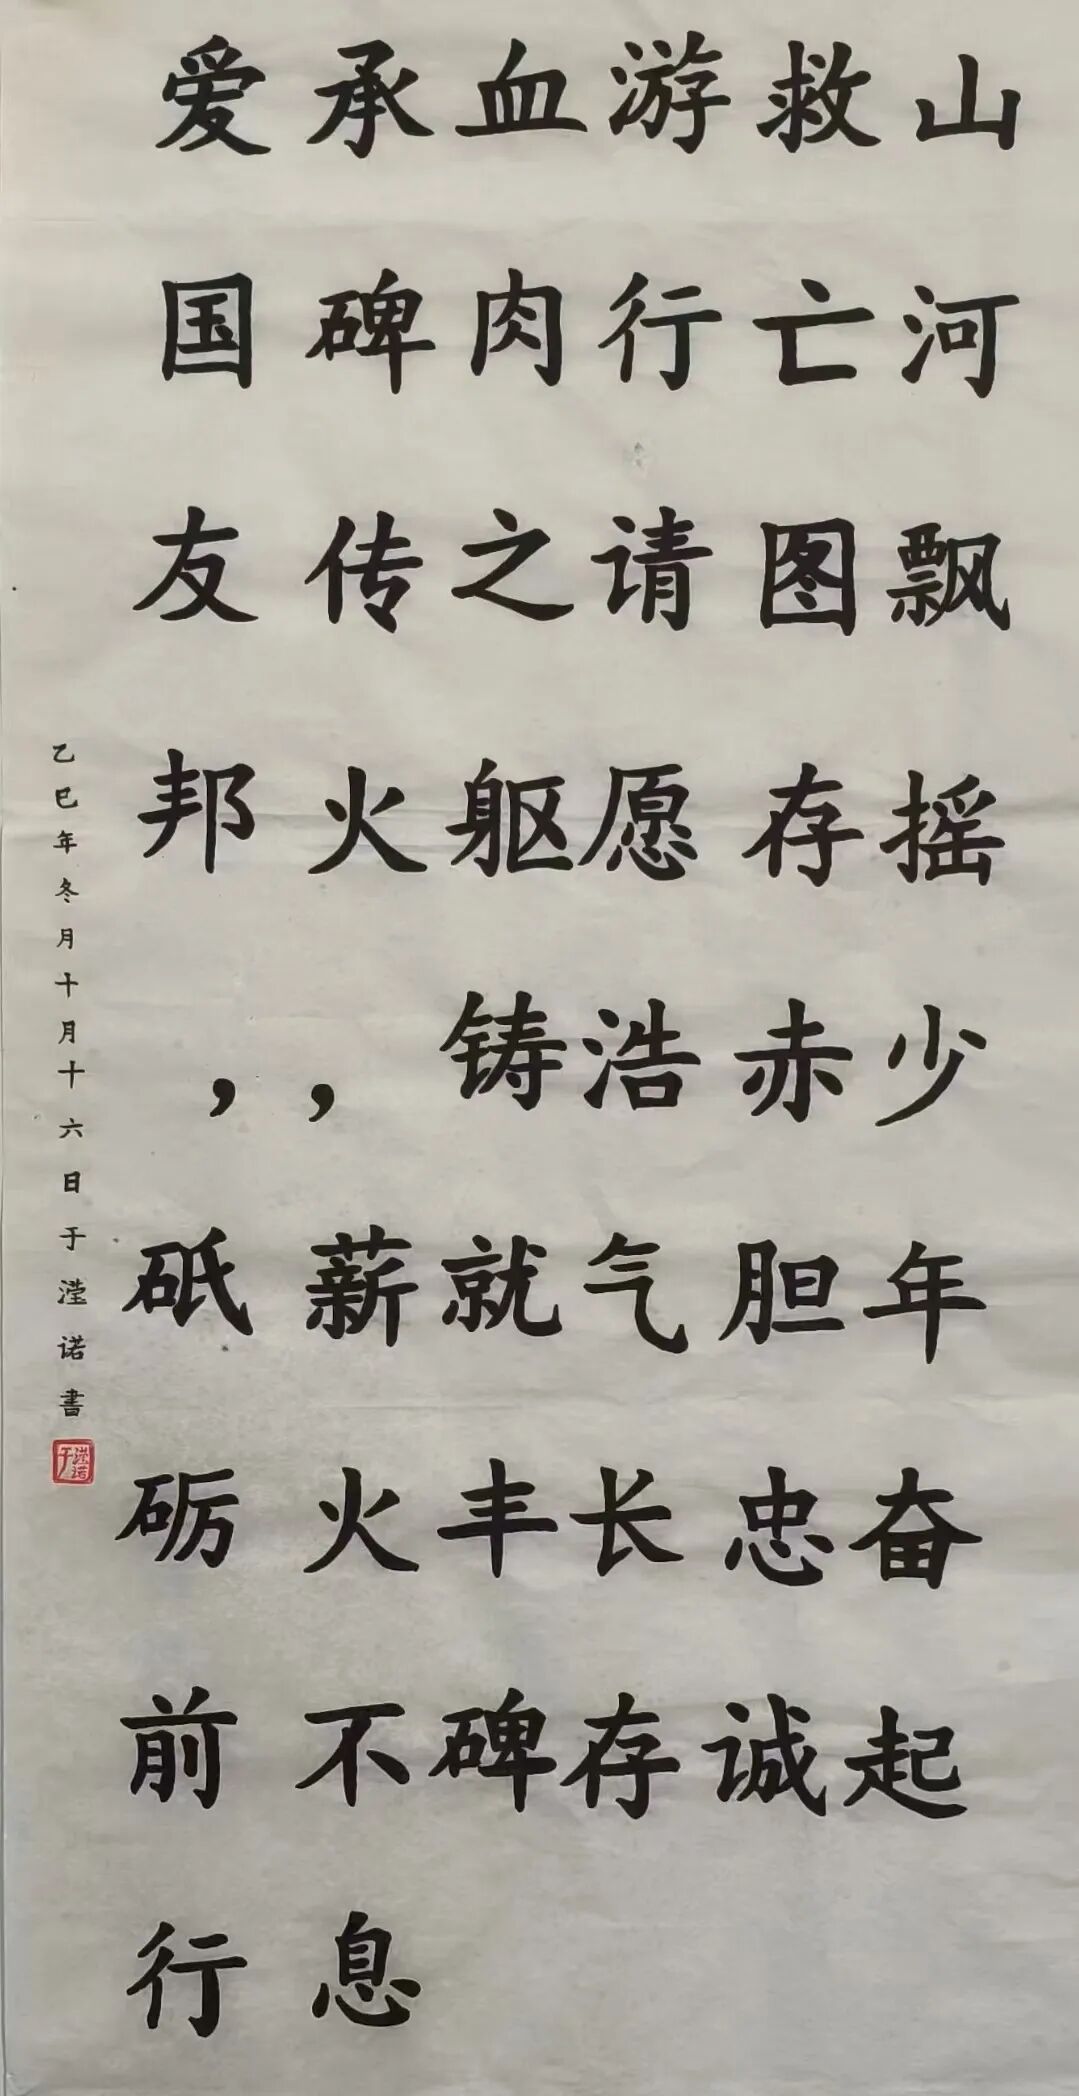 山河飘摇少年奋起
救亡图存赤胆忠诚
游行请愿浩气长存
血肉之躯铸就丰碑
承碑传火，薪火不息
爱国友邦，砥砺前行
乙巳年冬月十月十六日于滢诺書
于滢诺